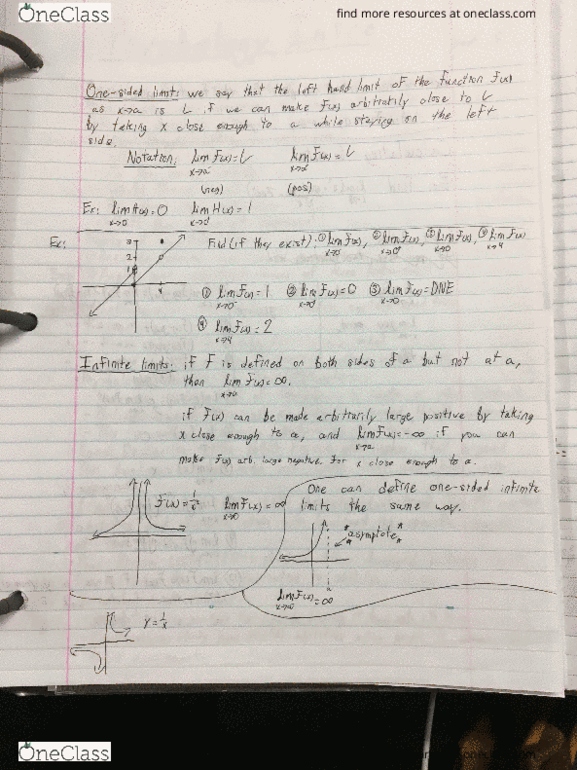 OneClass
find more resources at oneclass.com
One-sided limit: we say that the left hand limit of the function F(x)
as x→a is L if we can make F(x) arbitrarily close to L
by taking x close enough to a while staying on the left
side.
Notation: lim F(x)=L lim F(x)=L
x→a⁻ x→a⁺
(neg) (pos)
Ex: lim H(x)=0 lim H(x)=1
x→0⁻ x→0⁺
Ex: 3 Find (if they exist): ① lim F(x), ② lim F(x), ③ lim F(x), ④ lim F(x)
2 x→0⁻ x→0⁺ x→0 x→4
1
① lim F(x)=1 ② lim F(x)=0 ③ lim F(x)=DNE
x→0⁻ x→0⁺ x→0
④ lim F(x)=2
x→4
Infinite limits: if F is defined on both sides of a but not at a,
then lim F(x)=∞.
x→a
if F(x) can be made arbitrarily large positive by taking
x close enough to a, and lim F(x)=-∞ if you can
x→a
make F(x) arb. large negative. For x close enough to a.
F(x)= lim F(x)=∞
x→0
One can define one-sided infinite
limits the same way.
"asymptote"
lim F(x)=∞
y=1/x
OneClass